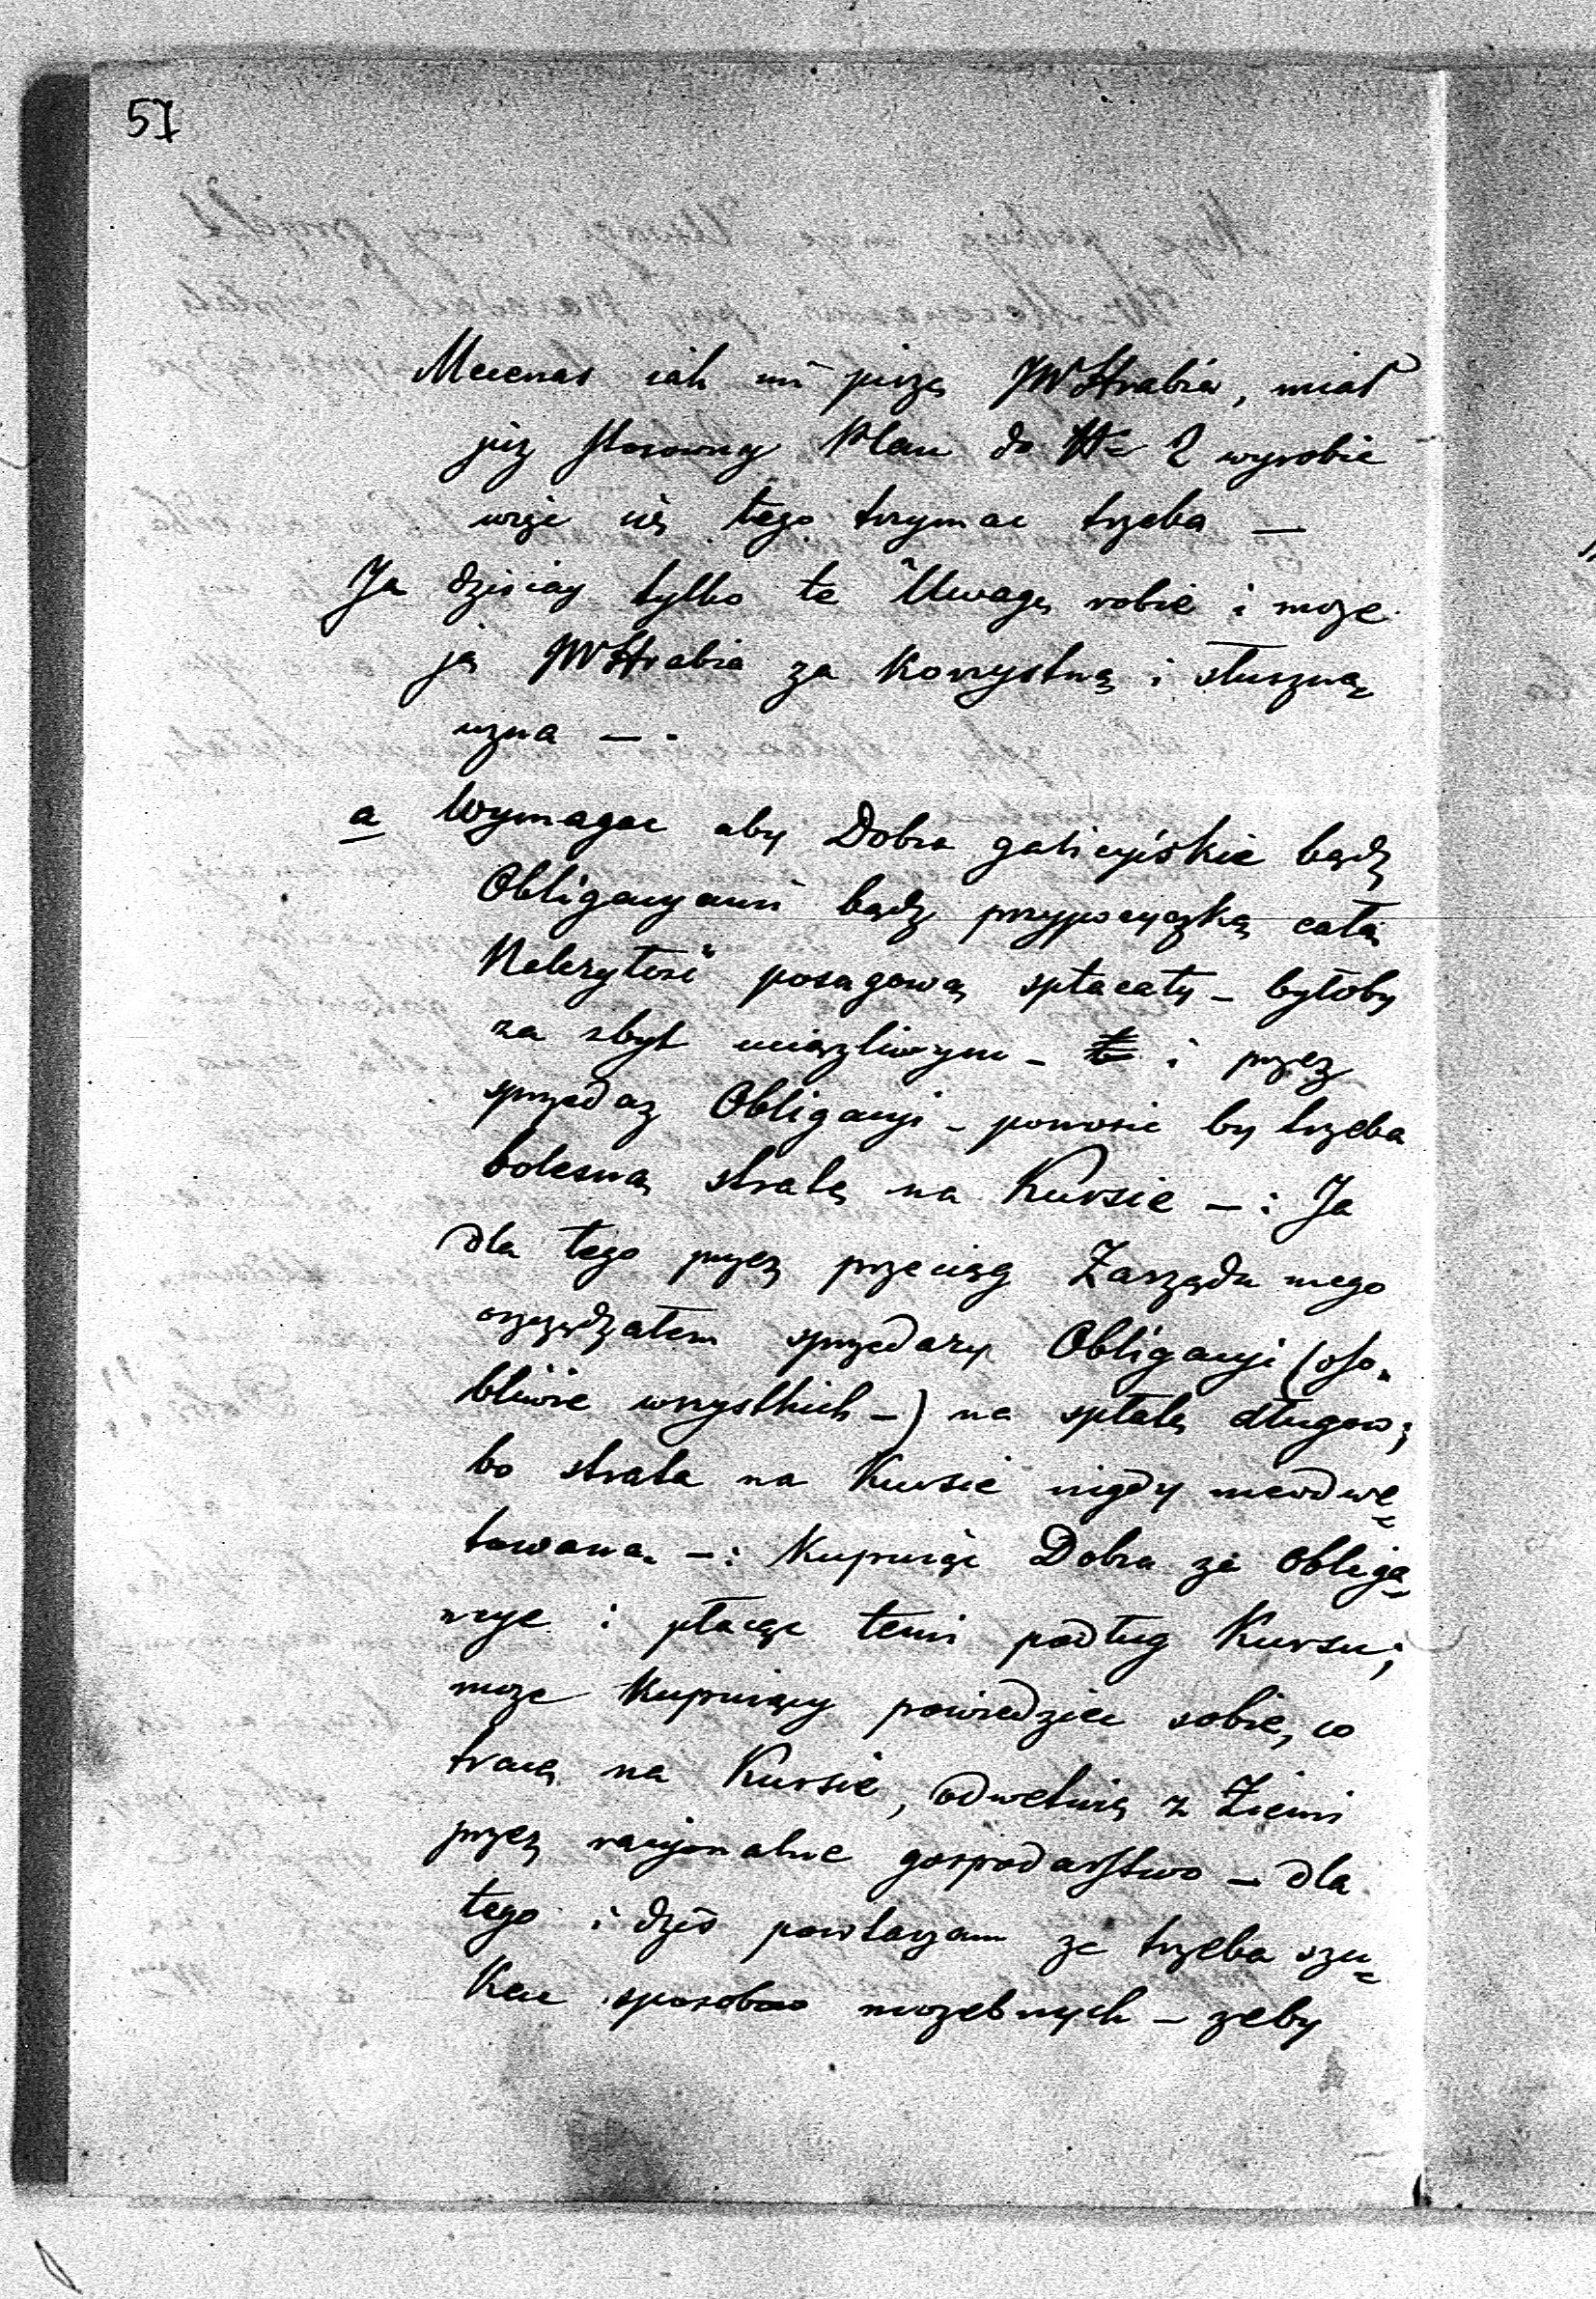 51
Mecenas iak mi pisze JWHrabia, miał
już stosowny Plan do 2 wyrobic
więc się tego trzymac trzeba —
Ja dzisiay tylko te Uwagę robie i moze
ją JWHrabia za Korzystną i słuszną
uzna — .
a Wymagac aby Dobra galicyiskie bądz
Obligacyami bądz przypożyczką całą
Należytość posagową spłacały – byłoby
za zbyt uciązliwym – i przez
sprzedaz Obligacyi – ponosic by trzeba
bolesną stratę na Kursie — : Ja
dla tego przez przeciąg Zarządu mego
oszczędzałem sprzedarzy Obligacyi (oso-
bliwie wszystkich –) na spłatę długow;
bo strata na Kursie nigdy nieodwe=
towana. – : Kupuiąc Dobra za obliga=
cye i płacąc temi podług Kursu;
moze Kupuiący powiedziec sobie, co
tracę na Kursie, odwetuię z Ziemi
przez racyonalne gospodarstwo — dla
tego i dziś powtarzam ze trzeba szu=
kac sposobow mozebnych – zeby